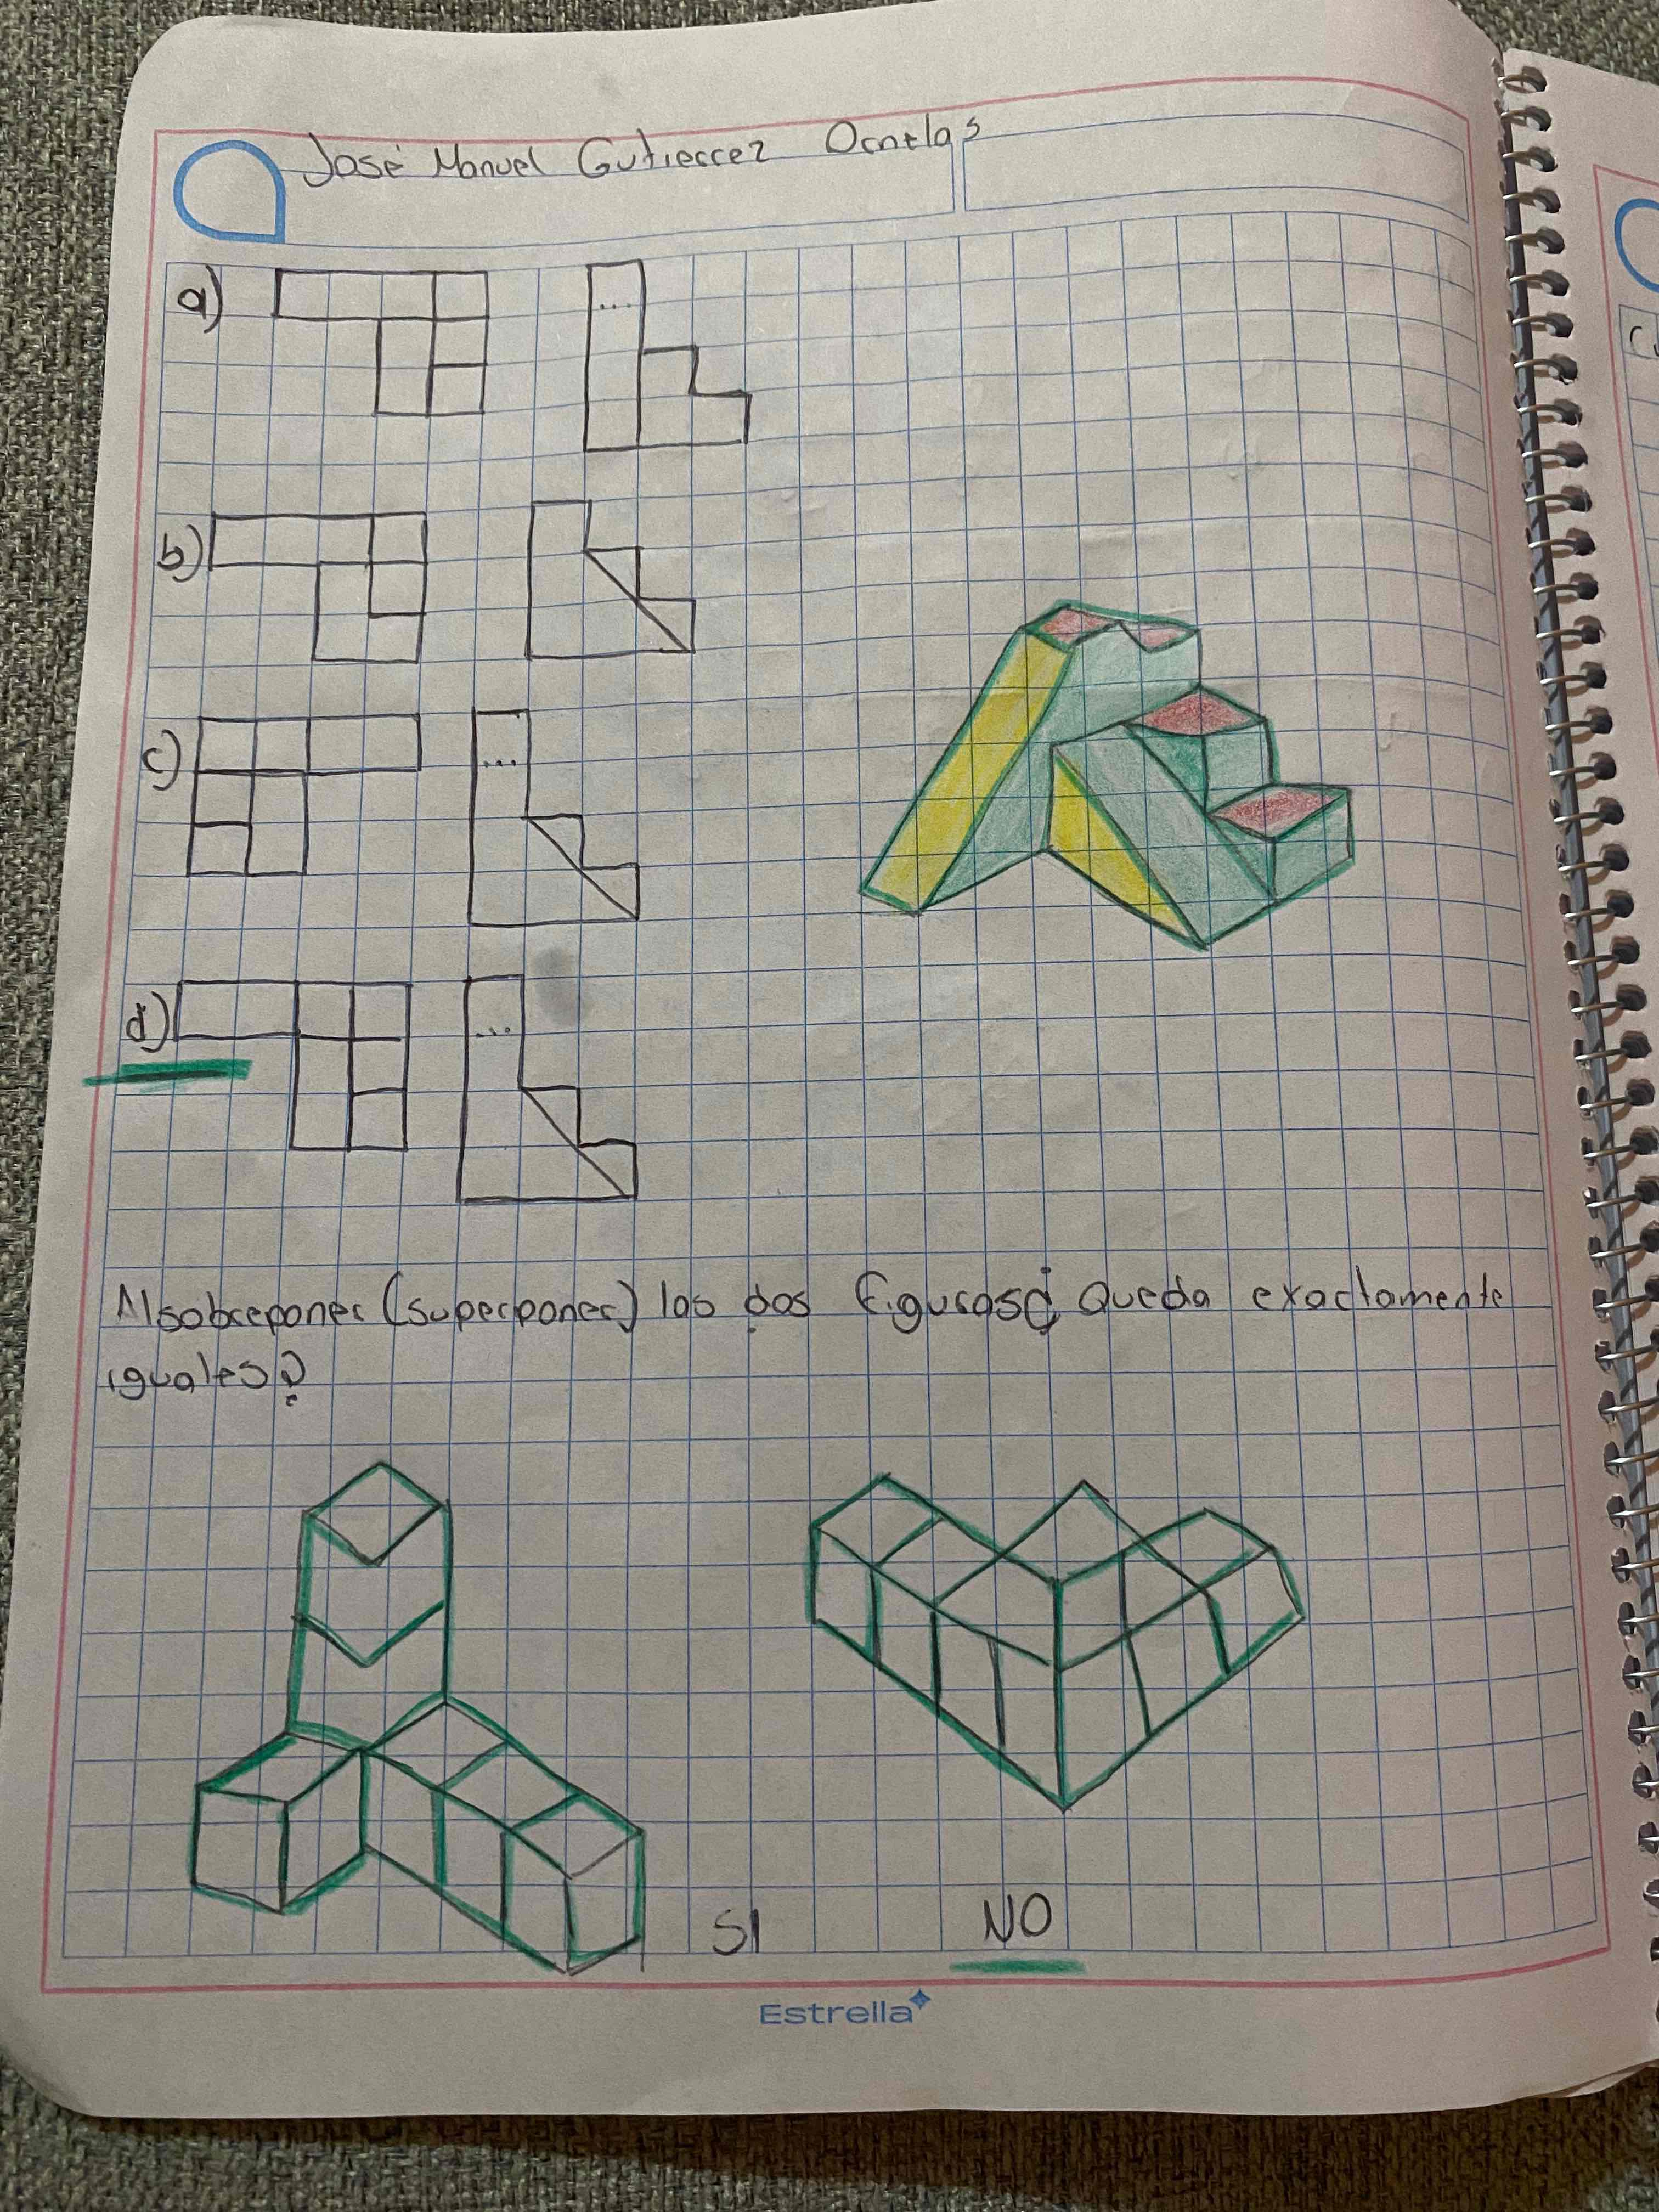 José Manuel Gutierrez Ornelas
a)
...
b)
c)
...
d)
...
Al sobreponer (superponer) las dos figuras¿ Queda exactamente
iguales?
SI NO
Estrella